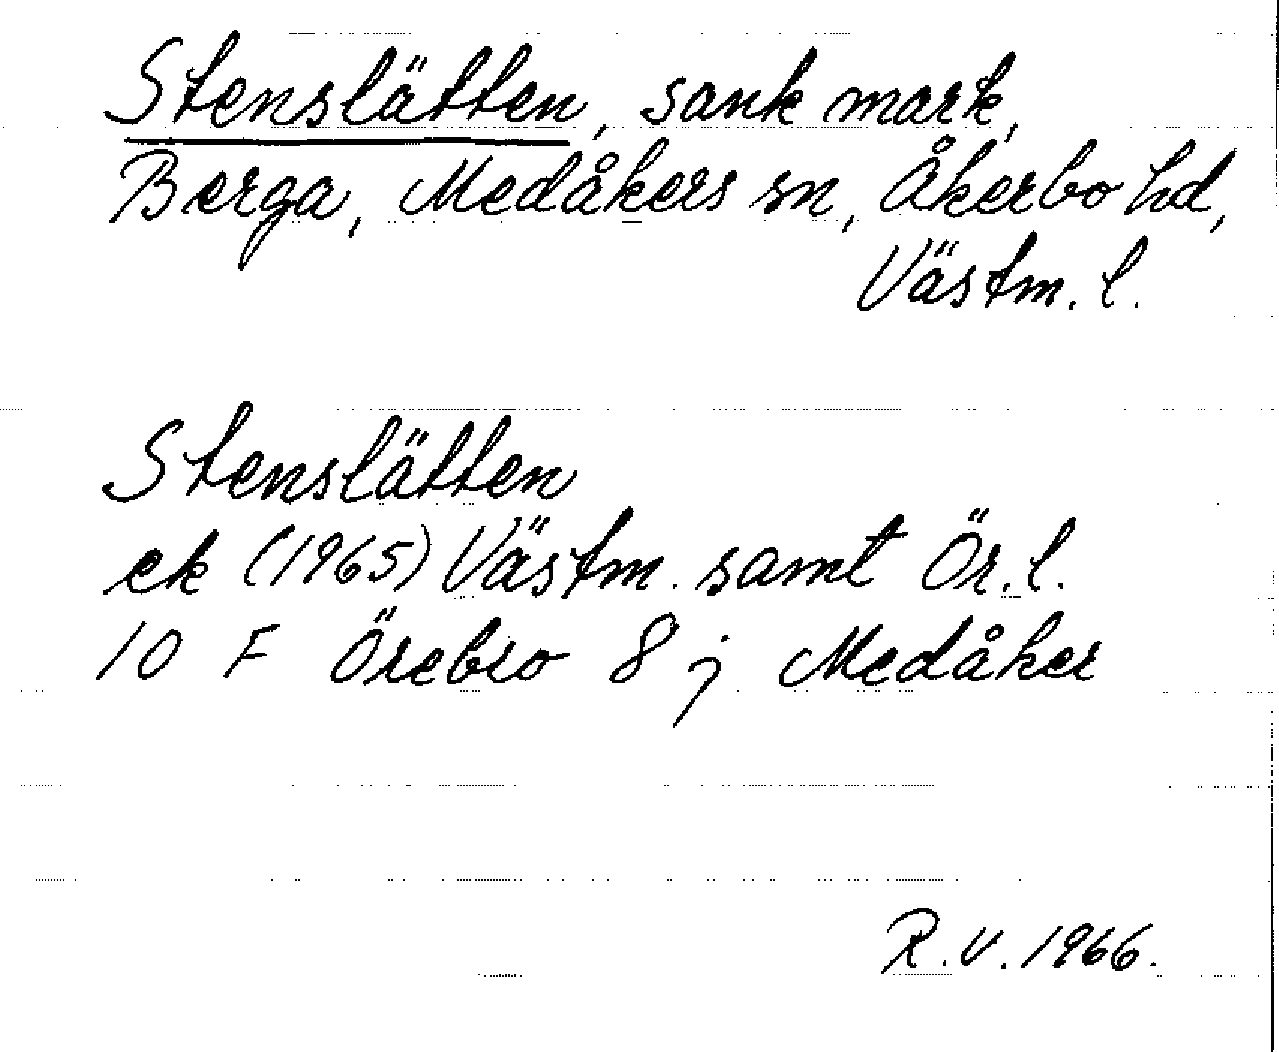 Stenslätten, sank mark,
Berga, Medåkers sn, Åkerbo hd,
Västm. l.
Stenslätten
ek (1965) Västm. samt Ör. l.
10 F Örebro 8 j Medåker
R.V. 1966.